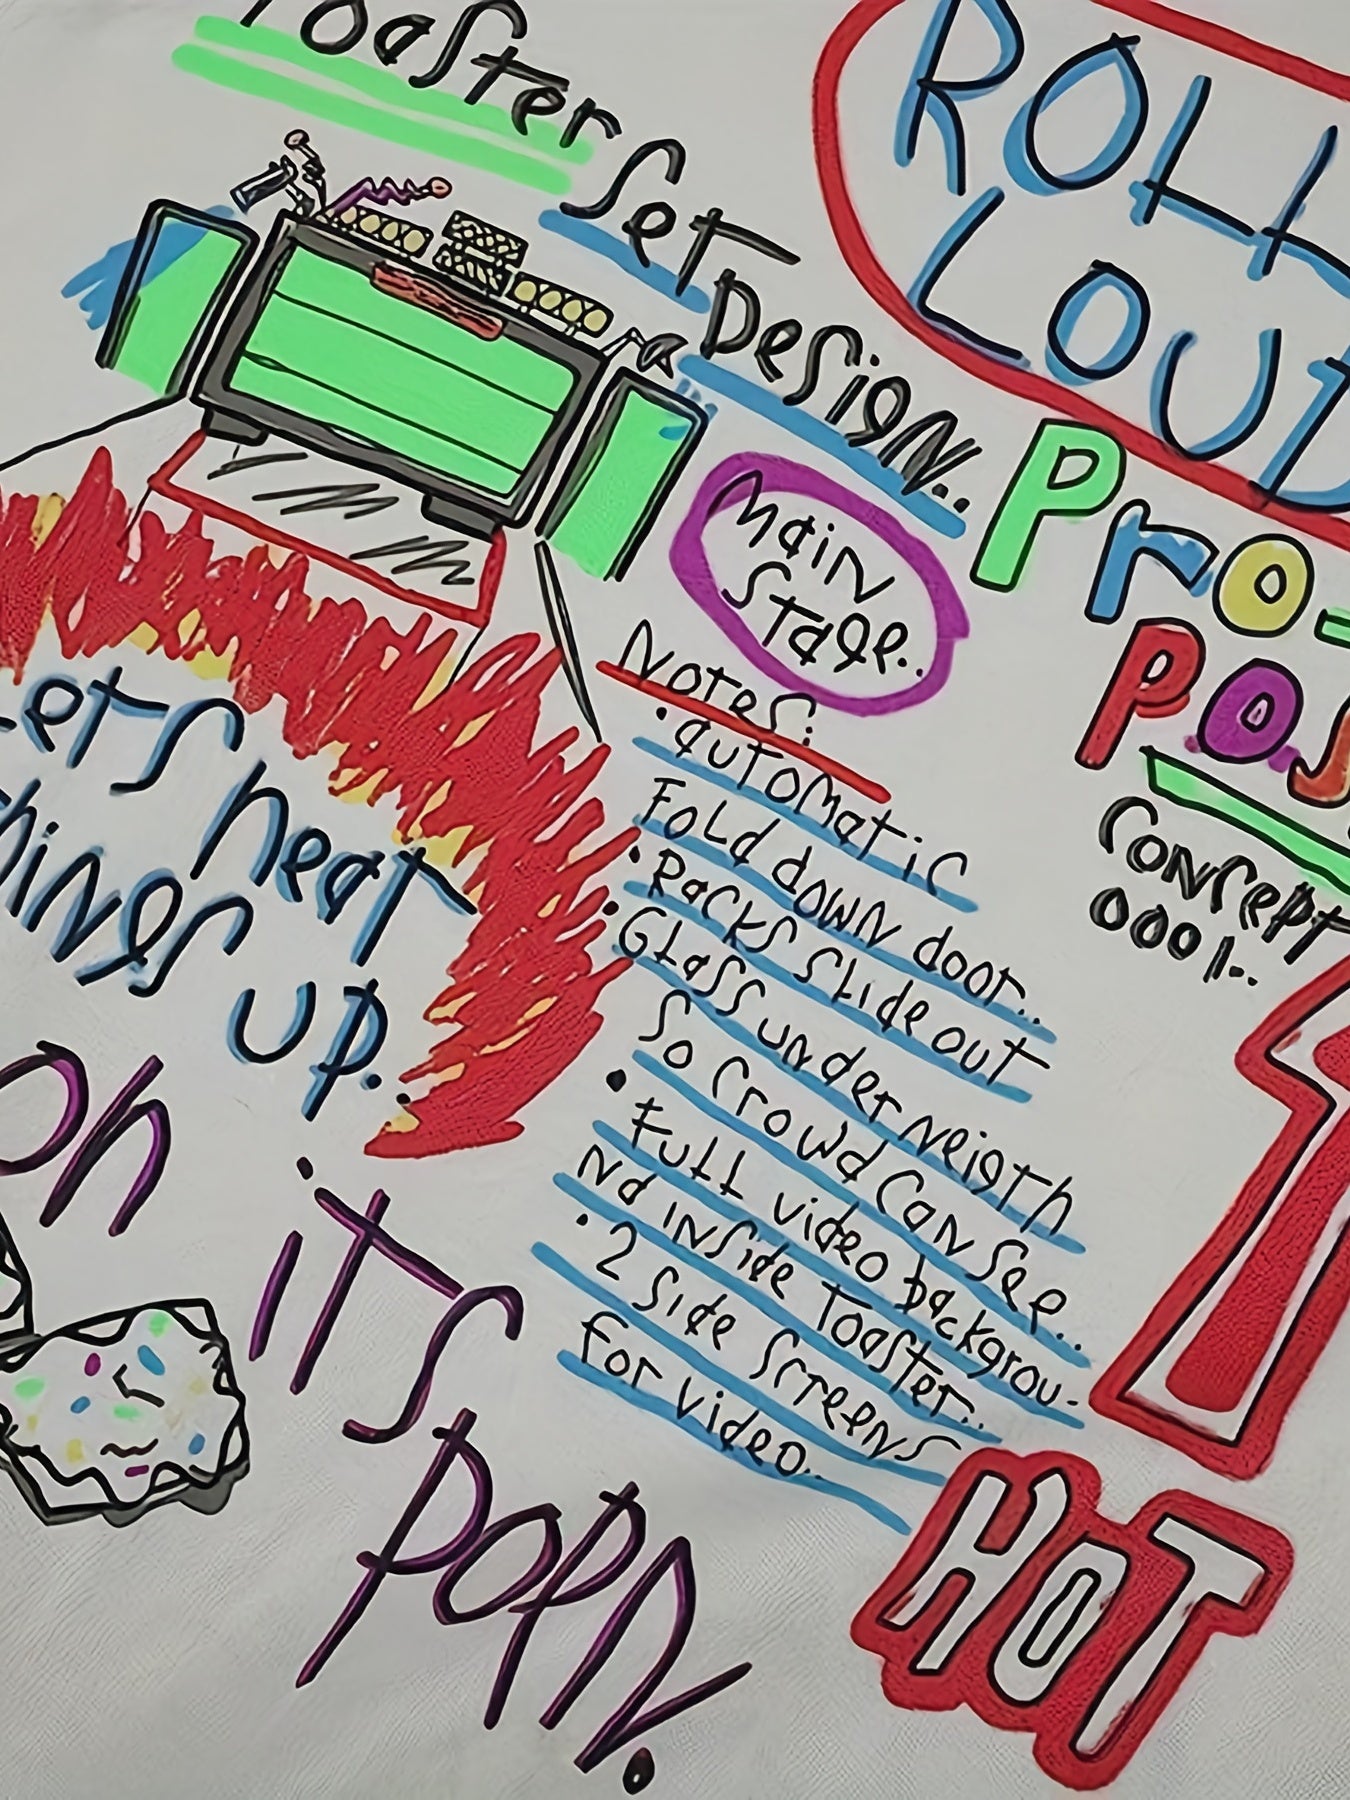 Toaster
Set
Design..
ROLL
LOUD
Pro-
Pos
Concept
0001..
Main
Stage..
Notes:
• automatic
Fold down door..
• Racks slide out
• Glass underneigth
So crowd can see..
• Full video backgrou-
nd inside toaster..
• 2 side screens
for video..
Let's heat
things up..
on
it's
HOT